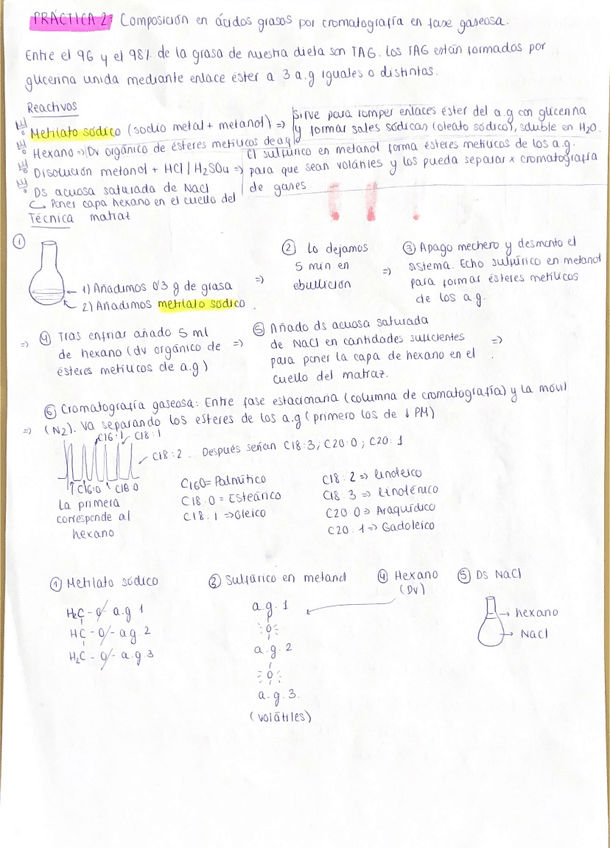 PRÁCTICA 2: Composición en ácidos grasos por cromatografía en fase gaseosa.
Entre el 96 y el 98% de la grasa de nuestra dieta son TAG. Los TAG están formados por
glicerina unida mediante enlace éster a 3 a.g iguales o distintos.
Reactivos
Metilato sódico (sodio metal + metanol) => sirve para romper enlaces éster del a.g con glicerina
y formar sales sódicas (oleato sódico), soluble en H2O.
Hexano => Dv orgánico de ésteres metílicos de a.g
Disolución metanol + HCl / H2SO4 => El sulfúrico en metanol forma ésteres metílicos de los a.g.
para que sean volátiles y los pueda separar x cromatografía
de gases
Ds acuosa saturada de NaCl
Poner capa hexano en el cuello del
matraz
Técnica
① 1) Añadimos 0'3 g de grasa
2) Añadimos metilato sódico.
=> ② Lo dejamos
5 min en
ebullición
=> ③ Apago mechero y desmonto el
sistema. Echo sulfúrico en metanol
para formar ésteres metílicos
de los a.g.
=> ④ Tras enfriar añado 5 ml
de hexano (dv orgánico de =>
ésteres metílicos de a.g)
⑤ Añado ds acuosa saturada
de NaCl en cantidades suficientes =>
para poner la capa de hexano en el
cuello del matraz.
⑥ Cromatografía gaseosa: Entre fase estacionaria (columna de cromatografía) y la móvil
=> (N2). Va separando los ésteres de los a.g (primero los de ↓ PM)
C16:1 C18:1
C18:2. Después serían C18:3; C20:0; C20:1
C16:0 C18:0
La primera
corresponde al
hexano
C16:0= Palmítico
C18:0= Esteárico
C18:1 => Oleico
C18:2 => Linoleico
C18:3 => Linolénico
C20:0 => Araquídico
C20:1 => Gadoleico
① Metilato sódico
H2C-O-a.g 1
HC-O-ag 2
H2C-O-a.g 3
② Sulfúrico en metanol
a.g.1
O
a.g.2
O
a.g.3.
(volátiles)
④ Hexano
(Dv)
⑤ Ds NaCl
hexano
NaCl